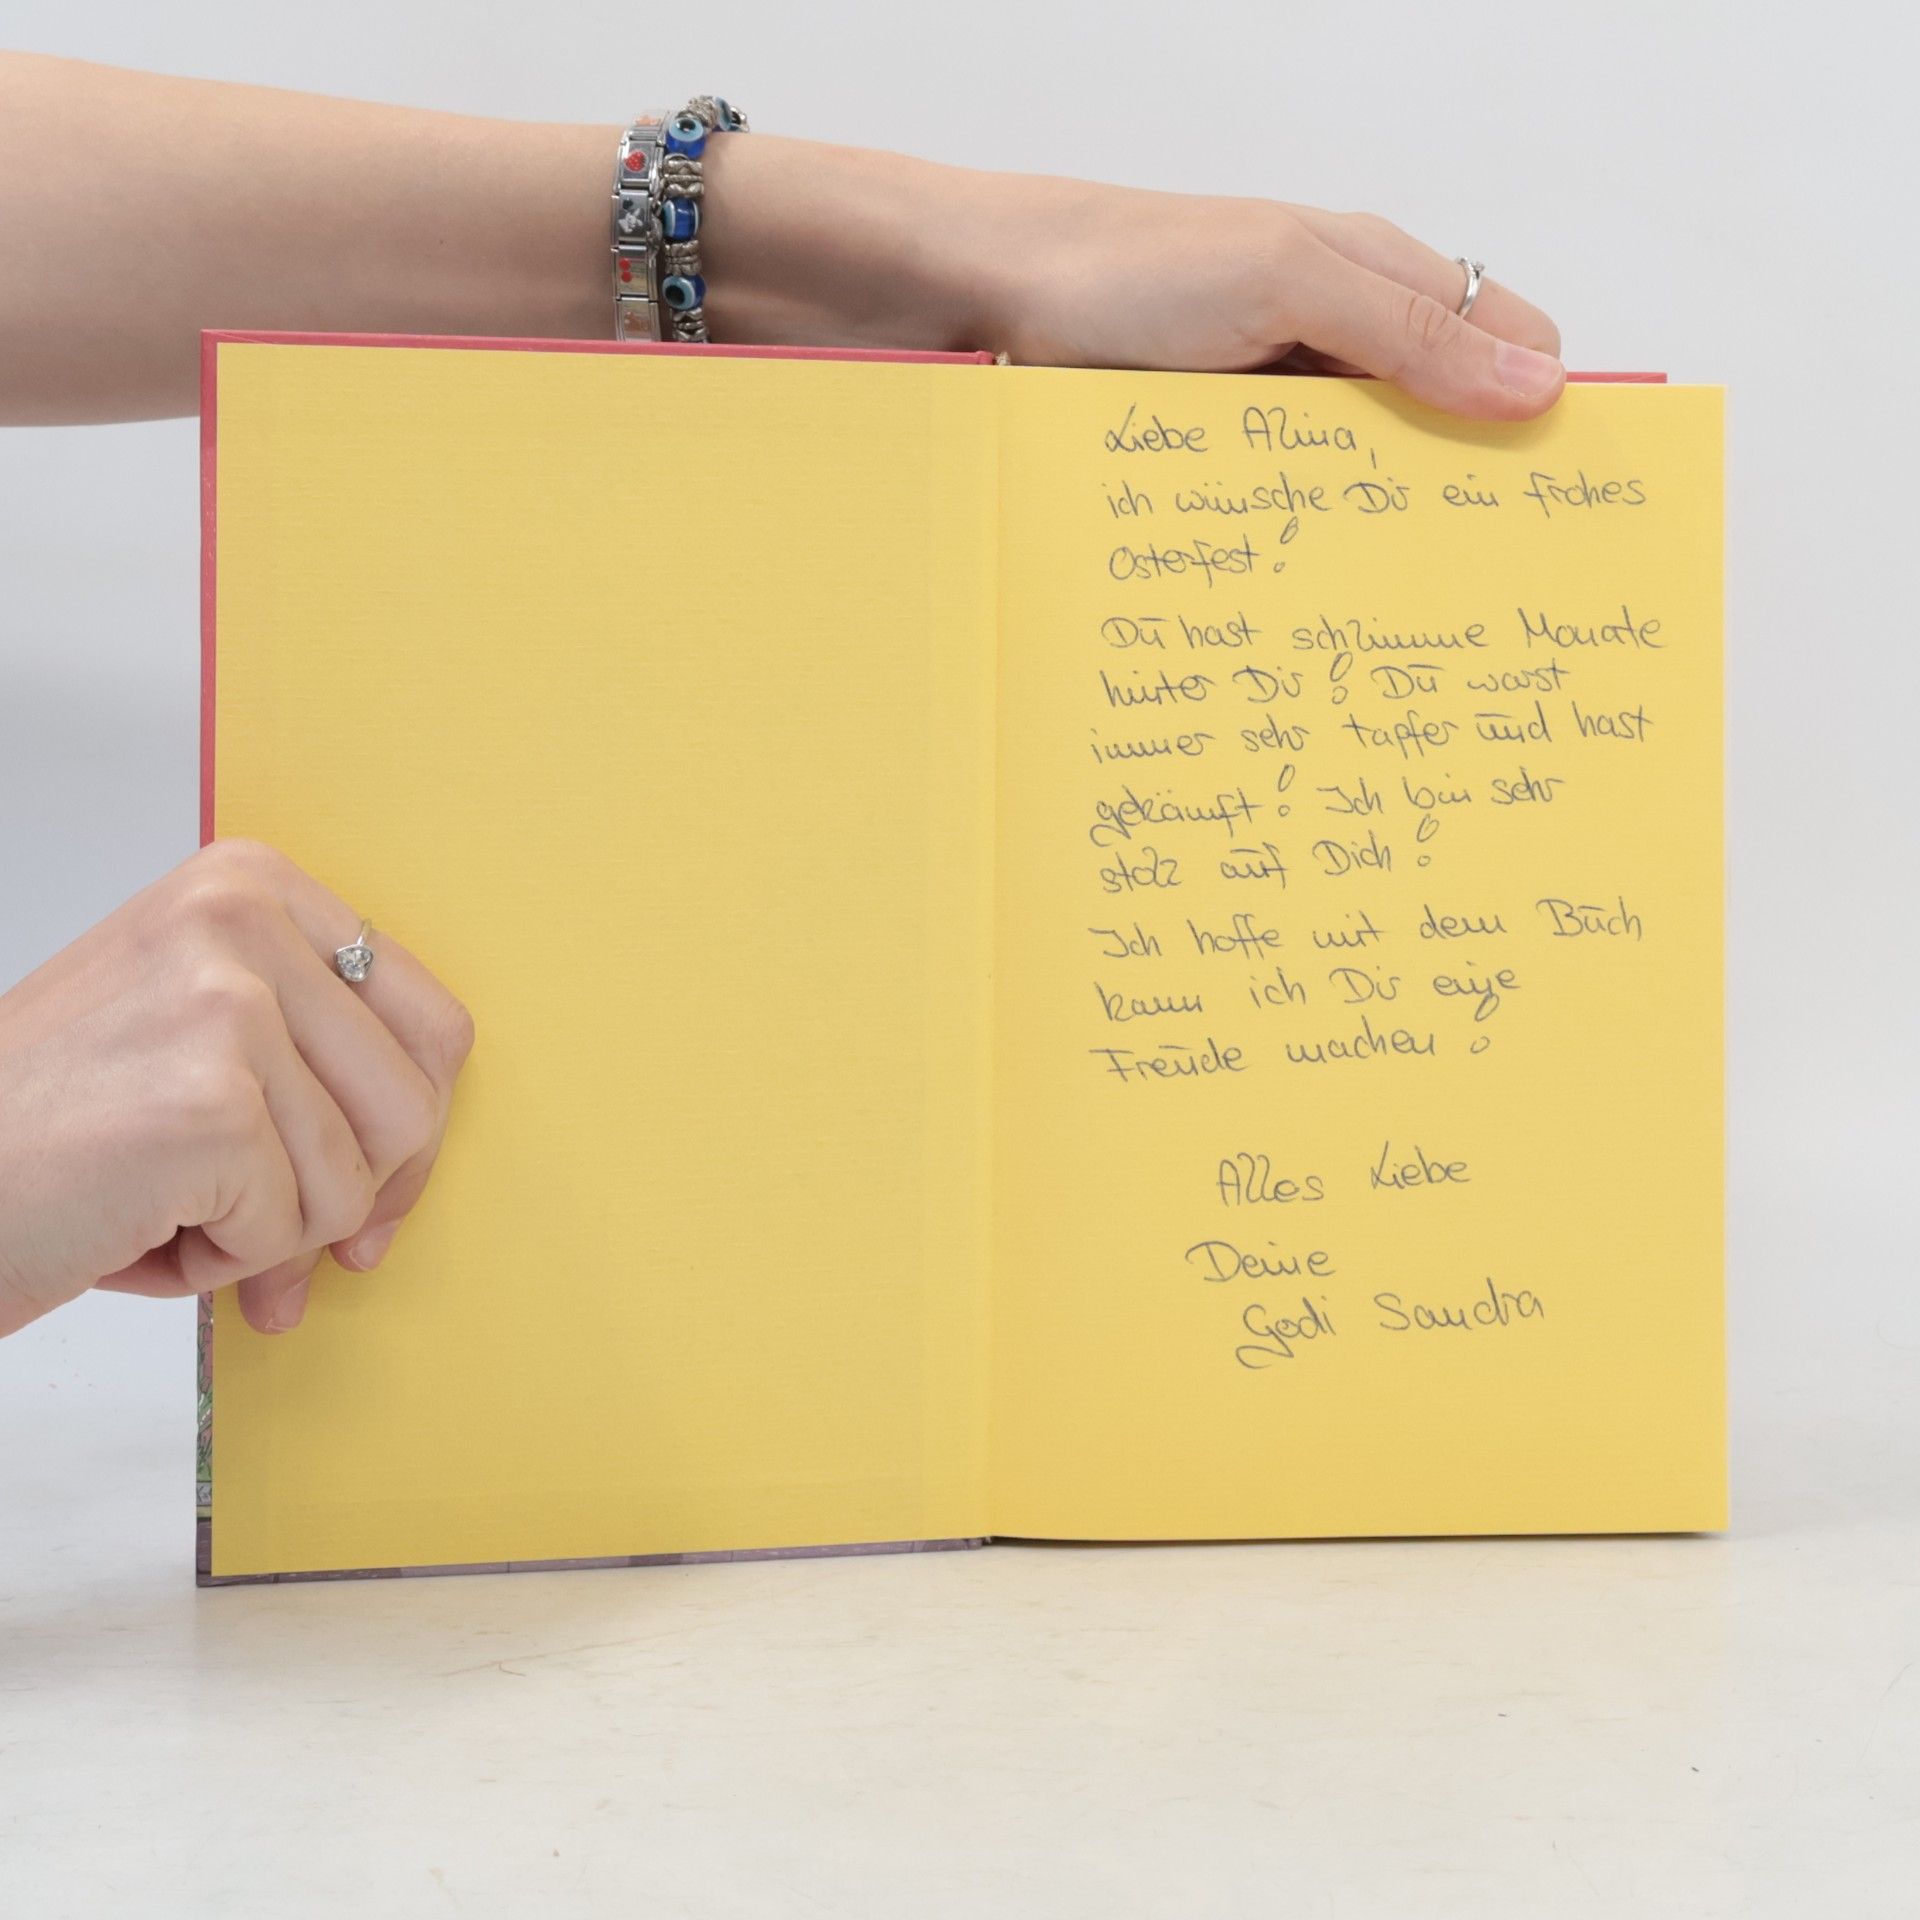 Liebe Alina,
ich wünsche Dir ein frohes
Osterfest!
Du hast schlimme Monate
hinter Dir! Du warst
immer sehr tapfer und hast
gekämft! Ich bin sehr
stolz auf Dich!
Ich hoffe mit dem Buch
kann ich Dir eine
Freude machen!
Alles Liebe
Deine
Godi Sandra